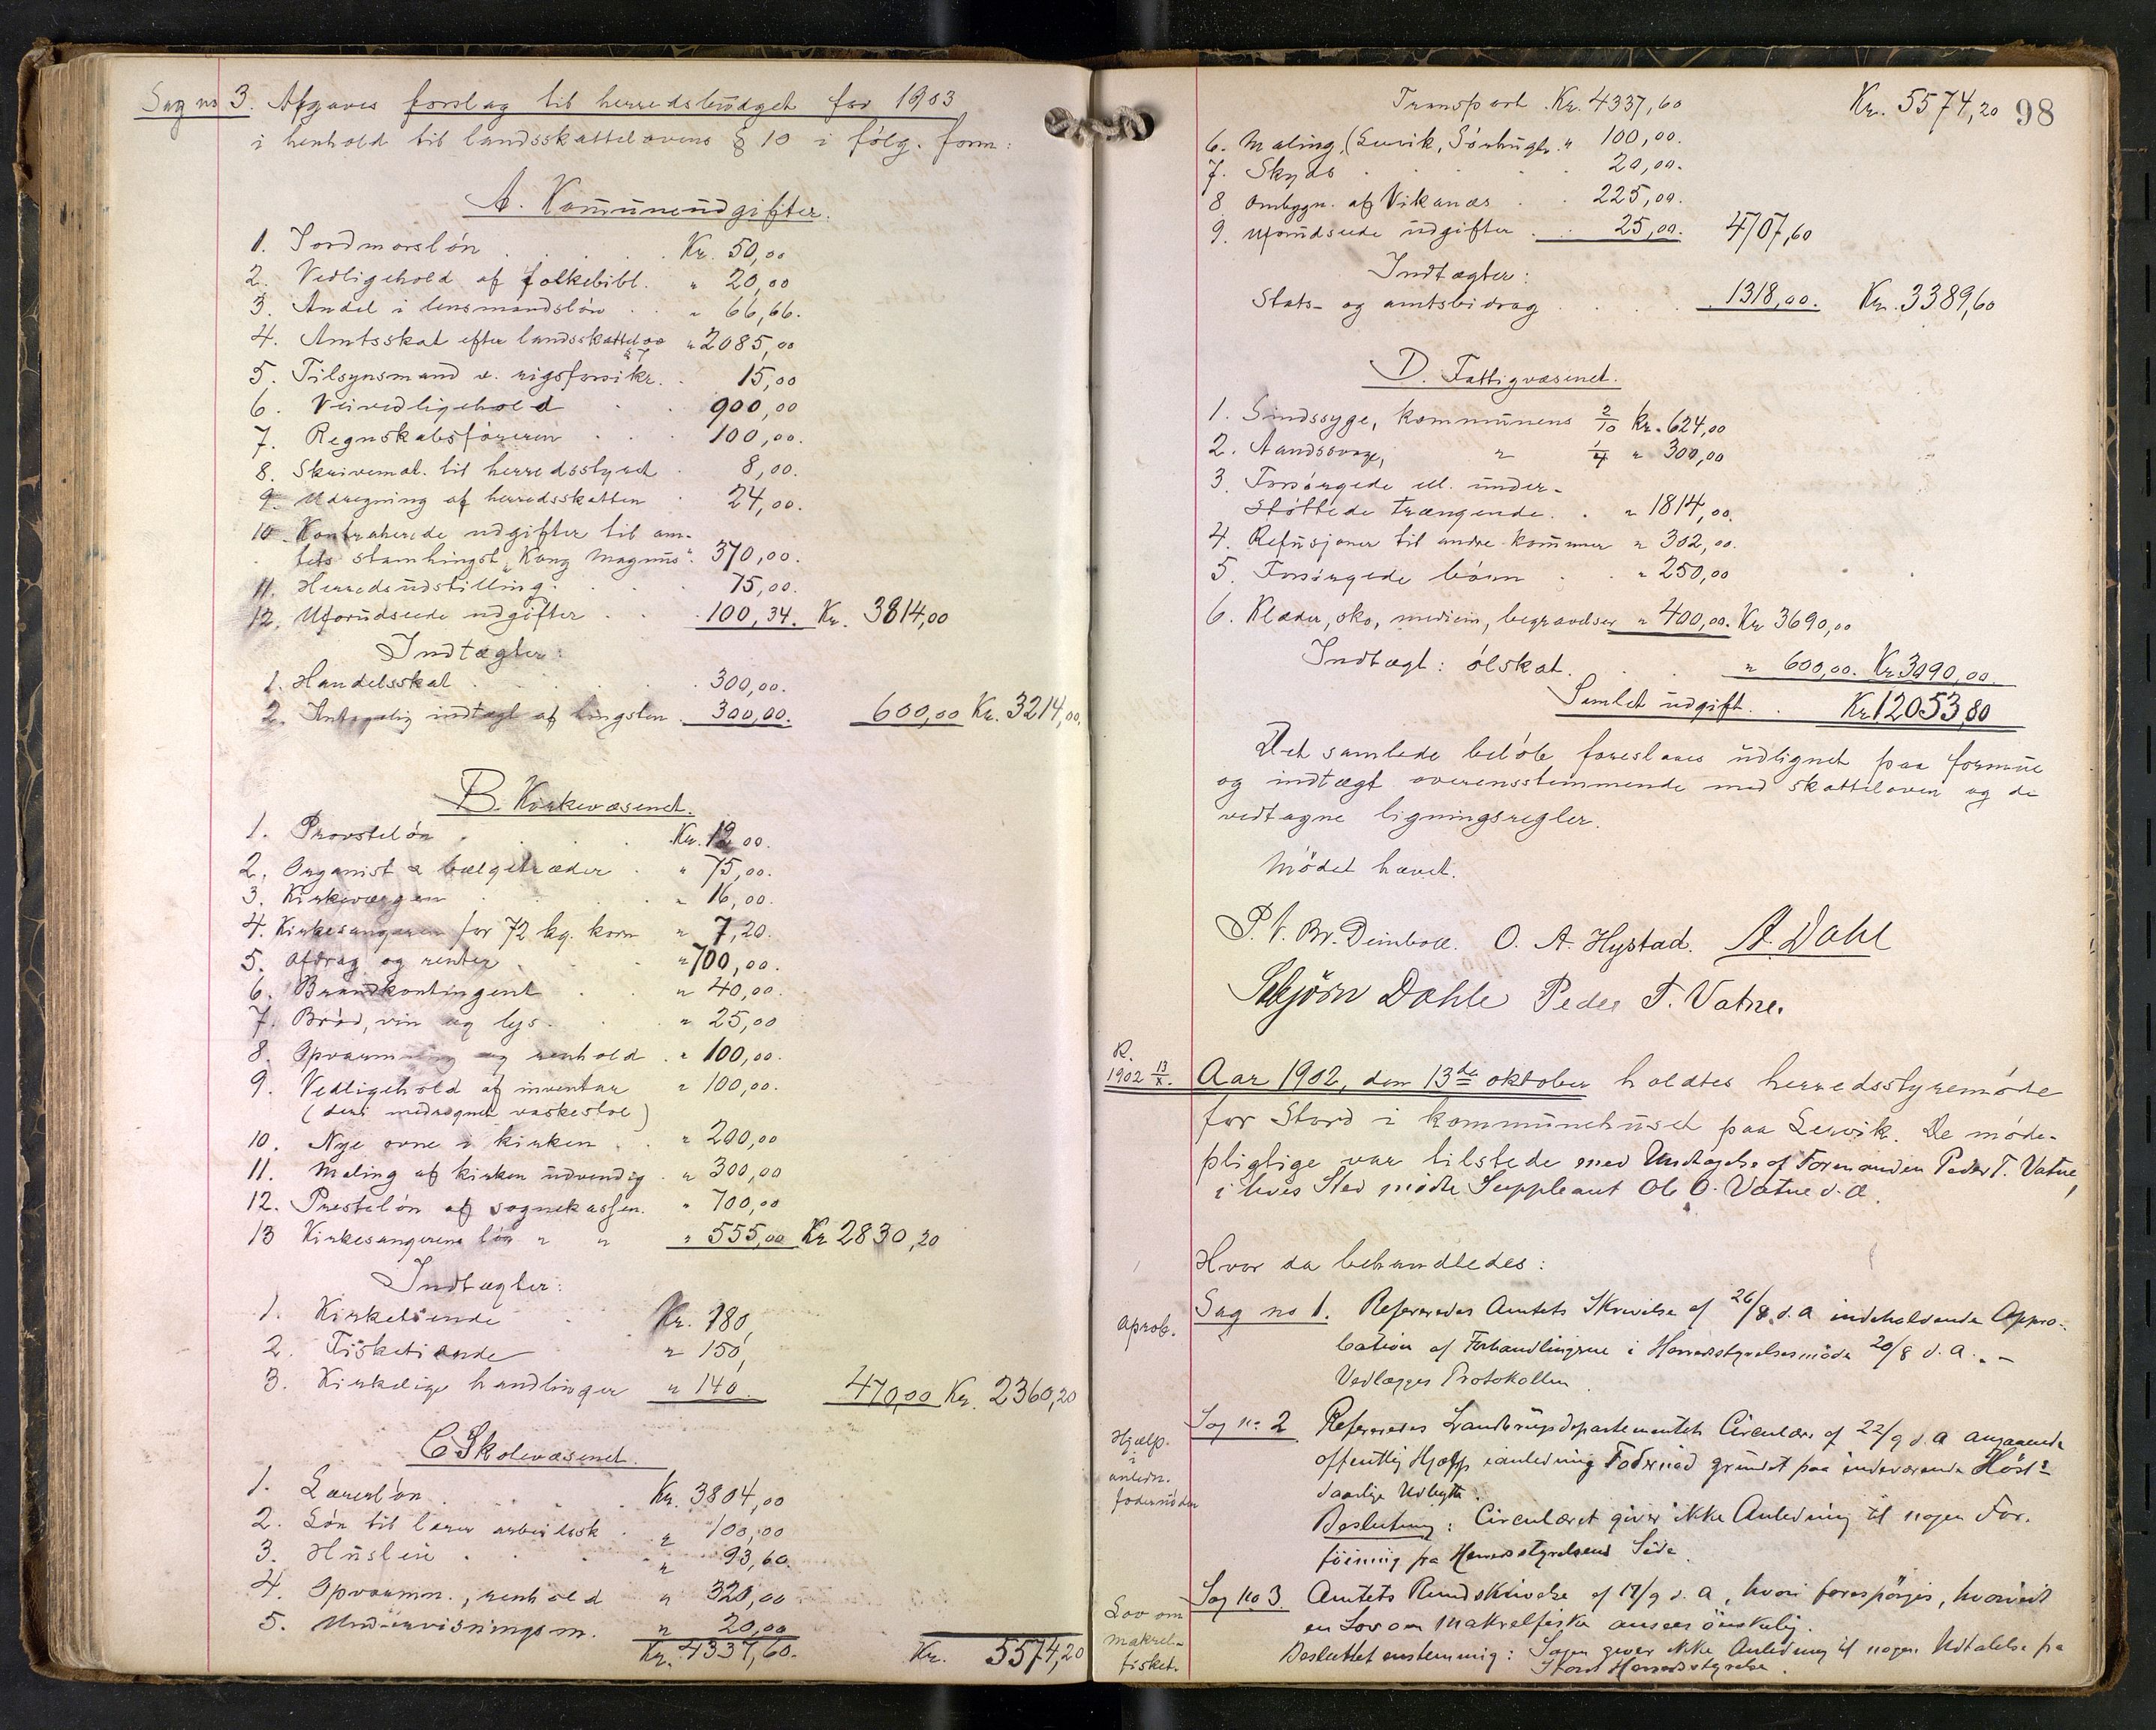 Sag no 3. Afgaves forslag til herredsbudget for 1903
i henhold til landsskattelovens § 10 i følg. form:
A. Kommuneudgifter.
1. Jordmorsløn . . . Kr. 50,00
2. Vedligehold af folkebibl. " 20,00
3. Andel i lensmandsløn . . " 66,66.
4. Amtsskat efter landsskattelov § 7 " 2085,00
5. Tilsynsmand v. rigsforsikr. . 15,00
6. Veivedligehold . . 900,00
7. Regnskabsføreren . . . 100,00.
8. Skrivemat. til herredsstyret . 8,00.
9. Udregning af herredsskatten . 24,00.
10. Kontraherede udgifter til am-
tets stamhingst "Kong Magnus". 370,00.
11. Herredsudstilling . . . 75,00.
12. Uforudseede udgifter . . . 100,34. Kr. 3814,00
Indtægter:
1. Handelsskat . . . 300,00.
2. Antagelig indtægt af hingsten . 300,00. 600,00 Kr. 3214,00.
B. Kirkevæsenet.
1. Provsteløn . . . Kr. 12,00.
2. Organist & bælgetræder . " 75,00.
3. Kirkeværgen . . . " 16,00.
4. Kirkesangeren for 72 kg. korn " 7,20.
5. Afdrag og renter . . " 700,00.
6. Brandkontingent . . " 40,00.
7. Brød, vin og lys . . " 25,00
8. Opvarmning og renhold . " 100,00.
9. Vedligehold af inventar " 100,00.
(deri medregnet vaskestol)
10. Nye ovne i kirken . . " 200,00
11. Maling af kirken udvendig . " 300,00
12. Presteløn af sognekassen. " 700,00
13 Kirkesangerens løn " " " 555,00 Kr 2830,20
Indtægter:
1. Kirketiende . Kr. 180,
2. Fisketiende " 150,
3. Kirkelige handlinger " 140. 470,00 Kr. 2360,20
C Skolevæsenet.
1. Lærerløn . . . Kr. 3804,00
2. Løn til lærer arbeidssk . " 100,00
3. Husleie . . . " 93,60.
4. Opvarmn., renhold " 320,00
5. Undervisningsm. " 20,00
Kr. 4337,60. Kr. 5574,20
98
Transport Kr. 4337,60 Kr. 5574,20
6. Maling, (Lervik, Sørhugl. " 100,00.
7. Skyds . . . . 20,00.
8 Ombygn. af Vikanæs . . 225,00.
9. Uforudseede udgifter . . 25,00. 4707,60
Indtægter:
Stats- og amtsbidrag . . . . 1318,00. Kr. 3389,60
D. Fattigvæsenet.
1. Sindssyge, kommunens 2/10 Kr. 624,00
2. Aandssvage, " 1/4 " 300,00
3. Forsørgede ell. under-
støttede trængende. . " 1814,00.
4. Refusjoner til andre kommuner " 302,00.
5. Forsørgede børn . . " 250,00
6. Klæder, sko, medicin, begravelser " 400,00. Kr 3690,00
Indtægt: ølskat. . . " 600,00. Kr 3090,00.
Samlet udgift. . Kr 12053,80
Det samlede beløb foreslaaes udlignet paa formue
og indtægt overensstemmende med skatteloven og de
vedtagne ligningsregler.
Mødet hævet.
O. A. Hystad. A. Dahl
Dahle Peder T. Vatne.
R.
1902 13/X. Aar 1902, den 13de oktober holdtes herredsstyremøde
for Stord i kommunehuset paa Lervik. De møde-
pligtige var tilstede med Undtagelse af Formanden Peder T. Vatne,
i hvis Sted mødte Suppleant Ole O. Vatne d.æ.
Hvor da behandledes:
Aprob.
Sag no 1. Refereredes Amtets Skrivelse af 26/8 d.a indeholdende Appro-
bation af Forhandlingerne i Herredsstyrelsesmøde 20/8 d.a. . –
Vedlægges Protokollen.
Hjælp.
i
anledn.
fodernøden
Sag no. 2 Refereredes Landbrugsdepartementets Circulær af 22/9 d.a angaaende
offentlig Hjælp i anledning Fodernød grundet paa indeværende Høsts
daarlige Udbytte.
Beslutning: Circulæret giver ikke Anledning til nogen For-
føining fra Herredsstyrelsens Side.
Lov om
makrel-
fisket.
Sag No 3. Amtets Rundskrivelse af 17/9 d.a, hvori forespørges, hvorvidt
en Lov om Makrelfiske ansees ønskelig.
Besluttet enstemmig: Sagen giver ikke Anledning til nogen Udtalelse fra
Stord Herredsstyrelse.